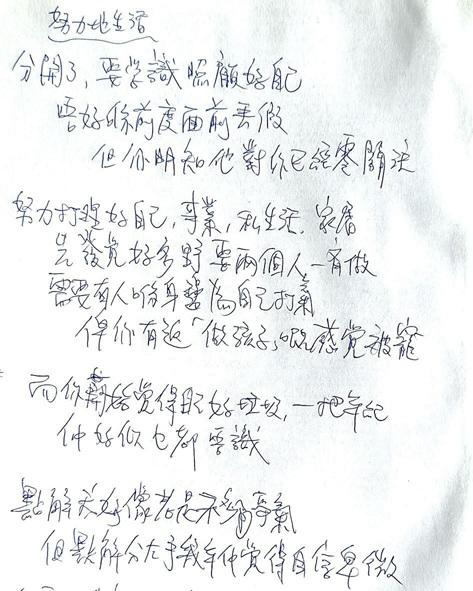 努力地生活
分開了,要學識照顧好自己
唔好係前度面前丟假
但你明知他對你已經零關注
努力打理好自己,事業,私生活,家居
先發覺好多野要兩個人一齊做
需要有人喺身邊為自己打氣
俾你有返「做孩子」嘅感覺被寵
而你開始覺得自己好垃圾,一把年紀
仲好似乜都唔識
點解
但點解分左手幾年仲覺得自信卑微